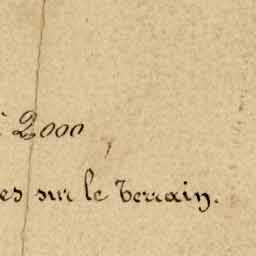 à 2000
es sur le terrain.